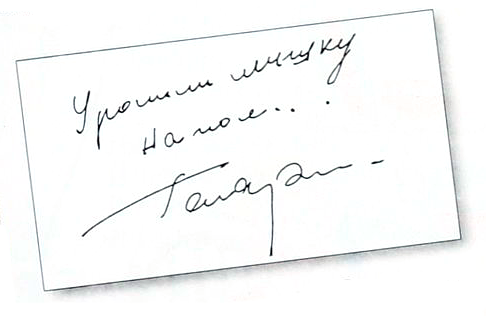 Уронили мишку
на пол...
Гагарин